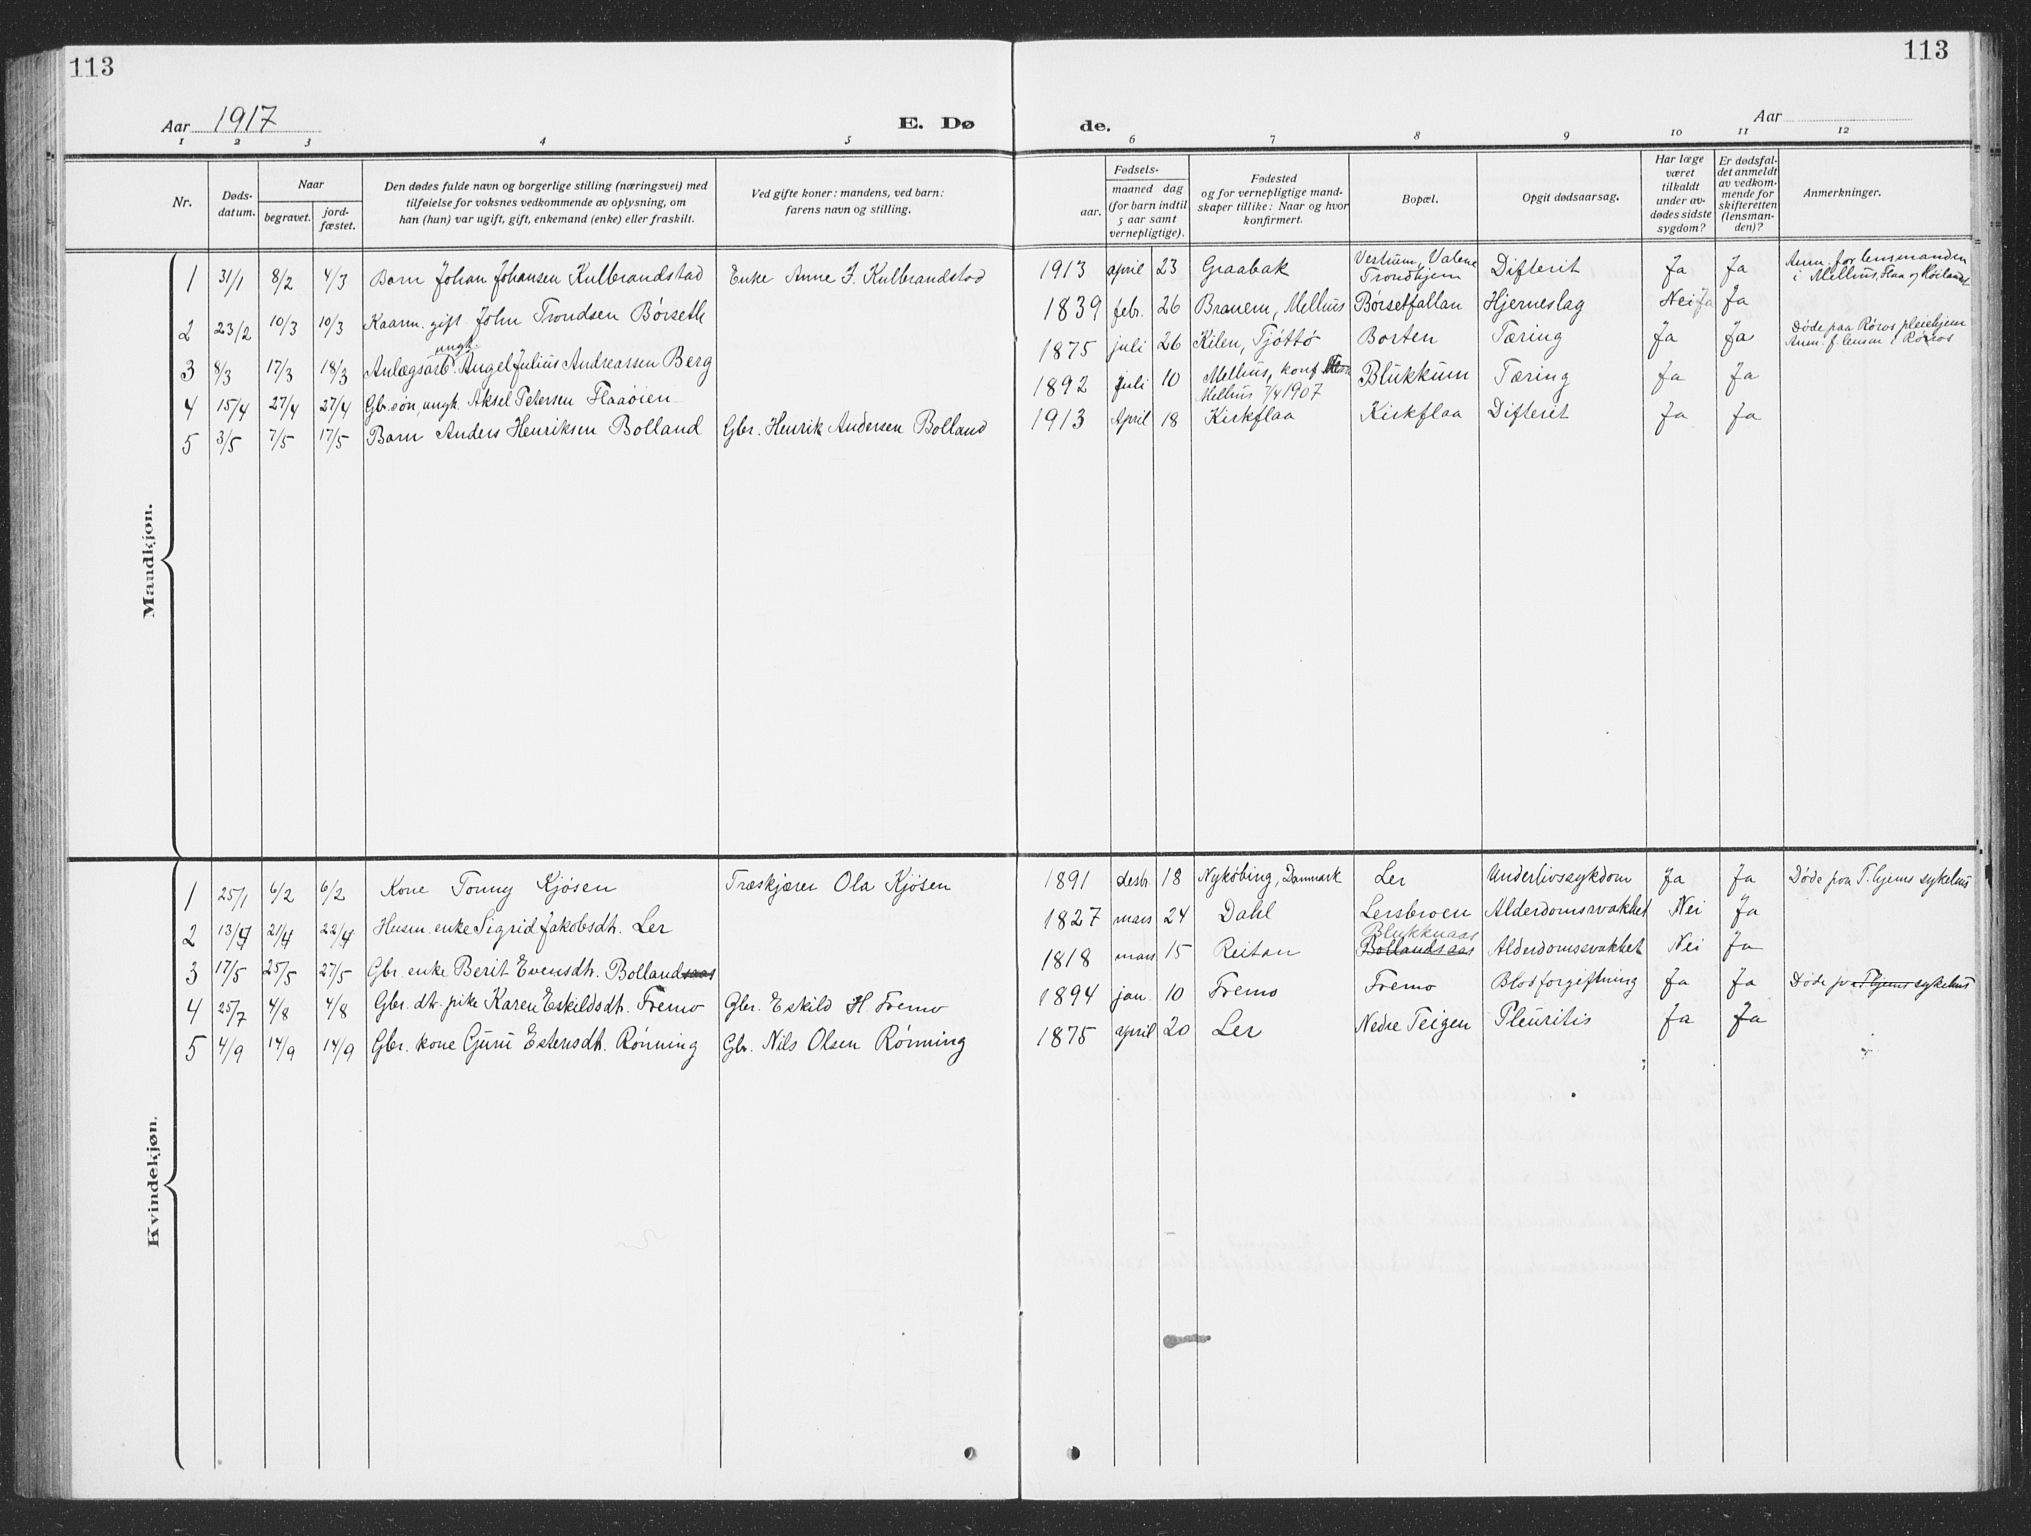 113
113
Aar 1917
E. Dø
de.
Aar
1 2 3 4 5 6 7 8 9 10 11 12
Nr.
Døds-
datum.
Naar
begravet.
jord-
fæstet.
Den dødes fulde navn og borgerlige stilling (næringsvei) med
tilføielse for voksnes vedkommende av oplysning, om
han (hun) var ugift, gift, enkemand (enke) eller fraskilt.
Ved gifte koner: mandens, ved barn:
farens navn og stilling.
Fødsels-
aar.
maaned dag
(for barn indtil
5 aar samt
vernepligtige).
Fødested
og for vernepligtige mand-
skaper tillike: Naar og hvor
konfirmert.
Bopæl.
Opgit dødsaarsag.
Har læge
været
tilkaldt
under av-
dødes sidste
sygdom?
Er dødsfal-
det anmeldt
av vedkom-
mende for
skifteretten
(lensman-
den)?
Anmerkninger.
Mandkjøn.
1 31/1 8/2 4/3 Barn Johan Johansen Kulbrandstad Enke Anne J. Kulbrandstad 1913 april 23 Graabak Trondhjem Difterit Ja Ja Anm. for lensmanden
i Melhus, Flaa og Høilandet
2 23/2 10/3 10/3 Kaarm. gift John Trondsen Børseth 1839 febr. 26 Branem, Melhus Børsetfallan Hjerneslag Nei Ja Ja
3 8/3 17/3 18/3 Anlægsarb. ungk. Angel Julius Andreassen Berg 1875 juli 26 Kilen, Tjøttø Borten Tæring Ja Ja Døde paa Røros pleiehjem
Anm. f. lensm. i Røros
4 15/4 27/4 27/4 Gbr. søn, ungk. Aksel Petersen Flaaøien 1892 juli 10 Melhus, konf.
Melhus 7/4 1907 Blukkum Tæring Ja Ja
5 3/5 7/5 17/5 Barn Anders Henriksen Bolland Gbr. Henrik Andersen Bolland 1913 April 18 Kirkflaa Kirkflaa Difterit Ja Ja
Kvindekjøn.
1 25/1 6/2 6/2 Kone Tonny Kjøsen Træskjærer Ola Kjøsen 1891 desbr. 18 Nykøbing, Danmark Ler Underlivssykdom Ja Ja Døde paa T.hjems sykehus
2 13/4 21/4 22/4 Husm. enke Sigrid Jakobsdt. Ler 1827 mars 24 Dahl Lersbroen Alderdomssvakhet Nei Ja
3 17/5 25/5 27/5 Gbr. enke Berit Evensdt. Bollandsaas 1818 mars 15 Reitan Blukknaas
Bollandsaas Alderdomssvakhet Nei Ja
4 25/7 4/8 4/8 Gbr. dtr. pike Karen Eskildsdt. Fremo Gbr. Eskild H. Fremo 1894 jan. 10 Fremo Fremo Blodforgiftning Ja Ja Døde paa T.hjems sykehus
5 4/9 14/9 14/9 Gbr. kone Guru Estensdt. Rønning Gbr. Nils Olsen Rønning 1875 april 20 Ler Nedre Teigen Pleuritis Ja Ja